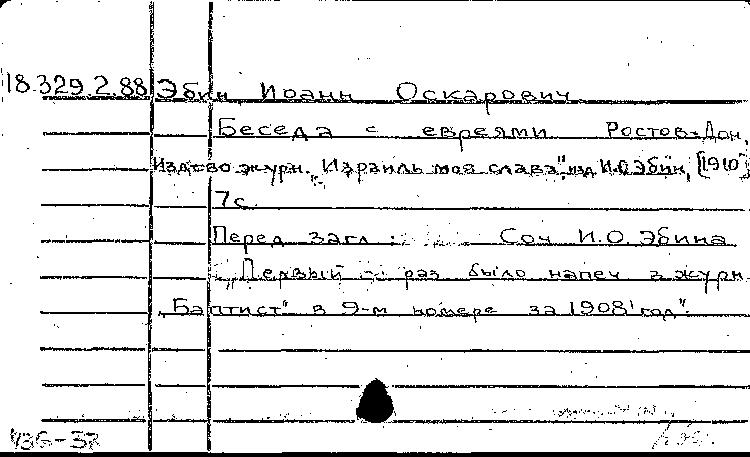 18.329.2.88 Эбин, Иоанн Оскарович
Беседа с евреями Ростов-Дон,
Изд-во журн. "Израиль моя слава", изд. И.О. Эбин, [1910]
7 с.
Перед загл.: Соч И.О. Эбина
"Первый раз было напеч в журн
"Баптист" в 9-м номере за 1908 год".
436-37